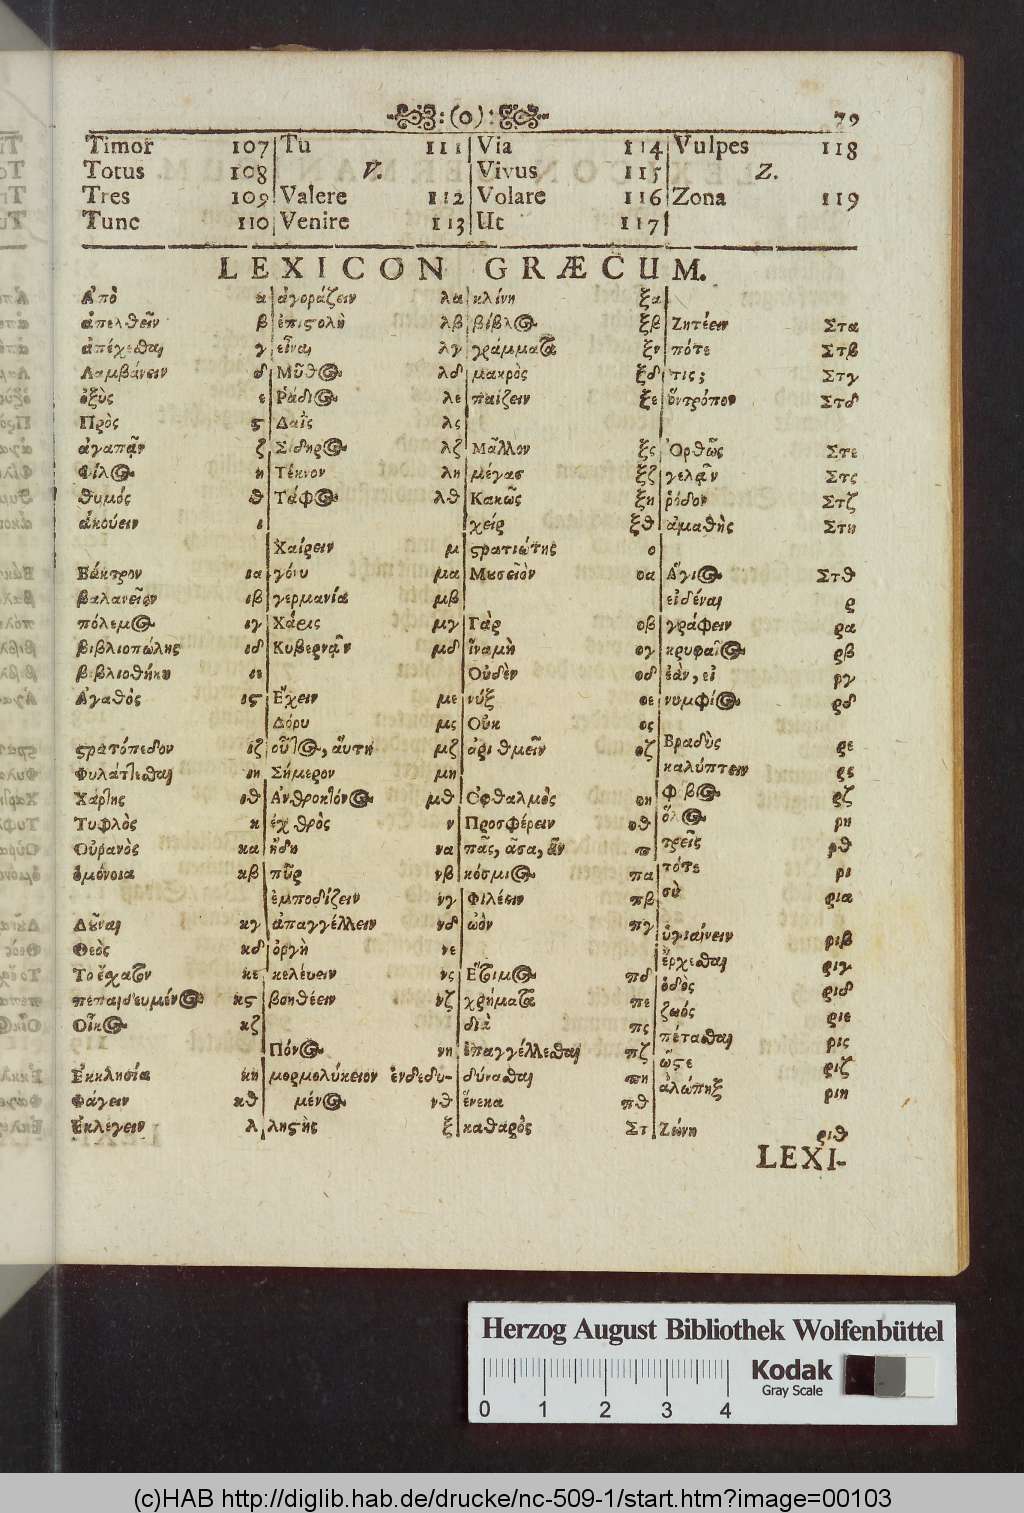 :(o):
79
Timor 107
Totus 108
Tres 109
Tunc 110
Tu 111
V.
Valere 112
Venire 113
Via 114
Vivus 115
Volare 116
Ut 117
Vulpes 118
Z.
Zona 119
LEXICON GRÆCUM.
Ἀπὸ α
ἀπελθεῖν β
ἀπέχεσθαι γ
Λαμβάνειν δ
ὀξὺς ε
Πρὸς ϛ
ἀγαπᾷν ζ
Φίλος η
θυμός θ
ἀκούειν ι
Βάκτρον ια
βαλανεῖον ιβ
πόλεμος ιγ
βιβλιοπώλης ιδ
βιβλιοθήκη ιε
Ἀγαθὸς ιϛ
στρατόπεδον ιζ
Φυλάττεσθαι ιη
Χάρτης ιθ
Τυφλὸς κ
Οὐρανὸς κα
ὁμόνοια κβ
Δῦναι κγ
Θεὸς κδ
Το ἔσχατον κε
πεπαιδευμένος κϛ
Οἶκος κζ
Ἐκκλησία κη
Φάγειν κθ
Ἐκλέγειν λ
ἀγοράζειν λα
ἐπιστολὴ λβ
εἶναι λγ
Μῦθος λδ
Ῥάδιος λε
Δαῒς λϛ
Σίδηρος λζ
Τέκνον λη
Τάφος λθ
Χαίρειν μ
γόνυ μα
γερμανία μβ
Χάρις μγ
Κυβερνᾷν μδ
Ἔχειν με
Δόρυ μϛ
οὗτος, αὕτη μζ
Σήμερον μη
Ἀνθροκτόνος μθ
ἐχθρὸς ν
ἤδη να
πῦρ νβ
ἐμποδίζειν νγ
ἀπαγγέλλειν νδ
ὀργὴ νε
κελέυειν νϛ
βοηθέειν νζ
Πόνος νη
μορμολύκειον ἐνδεδυ-
μένος νθ
ληστὴς ξ
κλίνη ξα
βίβλος ξβ
γράμματα ξγ
μακρὸς ξδ
παίζειν ξε
Μᾶλλον ξϛ
μέγας ξζ
Κακῶς ξη
χείρ ξθ
στρατιώτης ο
Μουσεῖον οα
Γὰρ οβ
ἵναμὴ ογ
Οὐδὲν οδ
νύξ οε
Οὐκ οϛ
ἀριθμεῖν οζ
Οφθαλμὸς οη
Προσφέρειν οθ
πᾶς, ᾶσα, ᾶν π
κόσμιος πα
Φιλέειν πβ
ὠὸν πγ
Ἕτοιμος πδ
χρήματα πε
διὰ πϛ
ἐπαγγέλλεσθαι πζ
δύνασθαι πη
ἕνεκα πθ
καθαρὸς Στ
Ζητέειν Στα
πότε Στβ
τις; Στγ
ὅντρόπον Στδ
Ὀρθῶς Στε
γελᾷν Στϛ
ῥόδον Στζ
ἀμαθὴς Στη
Ἅγιος Στθ
εἰδέναι ρ
γράφειν ρα
κρυφαῖος ρβ
ἐὰν, εἰ ργ
νυμφίος ρδ
Βραδὺς ρε
καλύπτειν ρϛ
Φόβος ρζ
ὅλος ρη
τρεῖς ρθ
τότε ρι
σὺ ρια
ὑγιαίνειν ριβ
ἔρχεσθαι ριγ
ὁδὸς ριδ
ζωός ριε
πέτασθαι ριϛ
ὥστε ριζ
ἀλώπηξ ριη
Ζώνη ριθ
LEXI-
Herzog August Bibliothek Wolfenbüttel
0 1 2 3 4
Kodak
Gray Scale
(c)HAB http://diglib.hab.de/drucke/nc-509-1/start.htm?image=00103